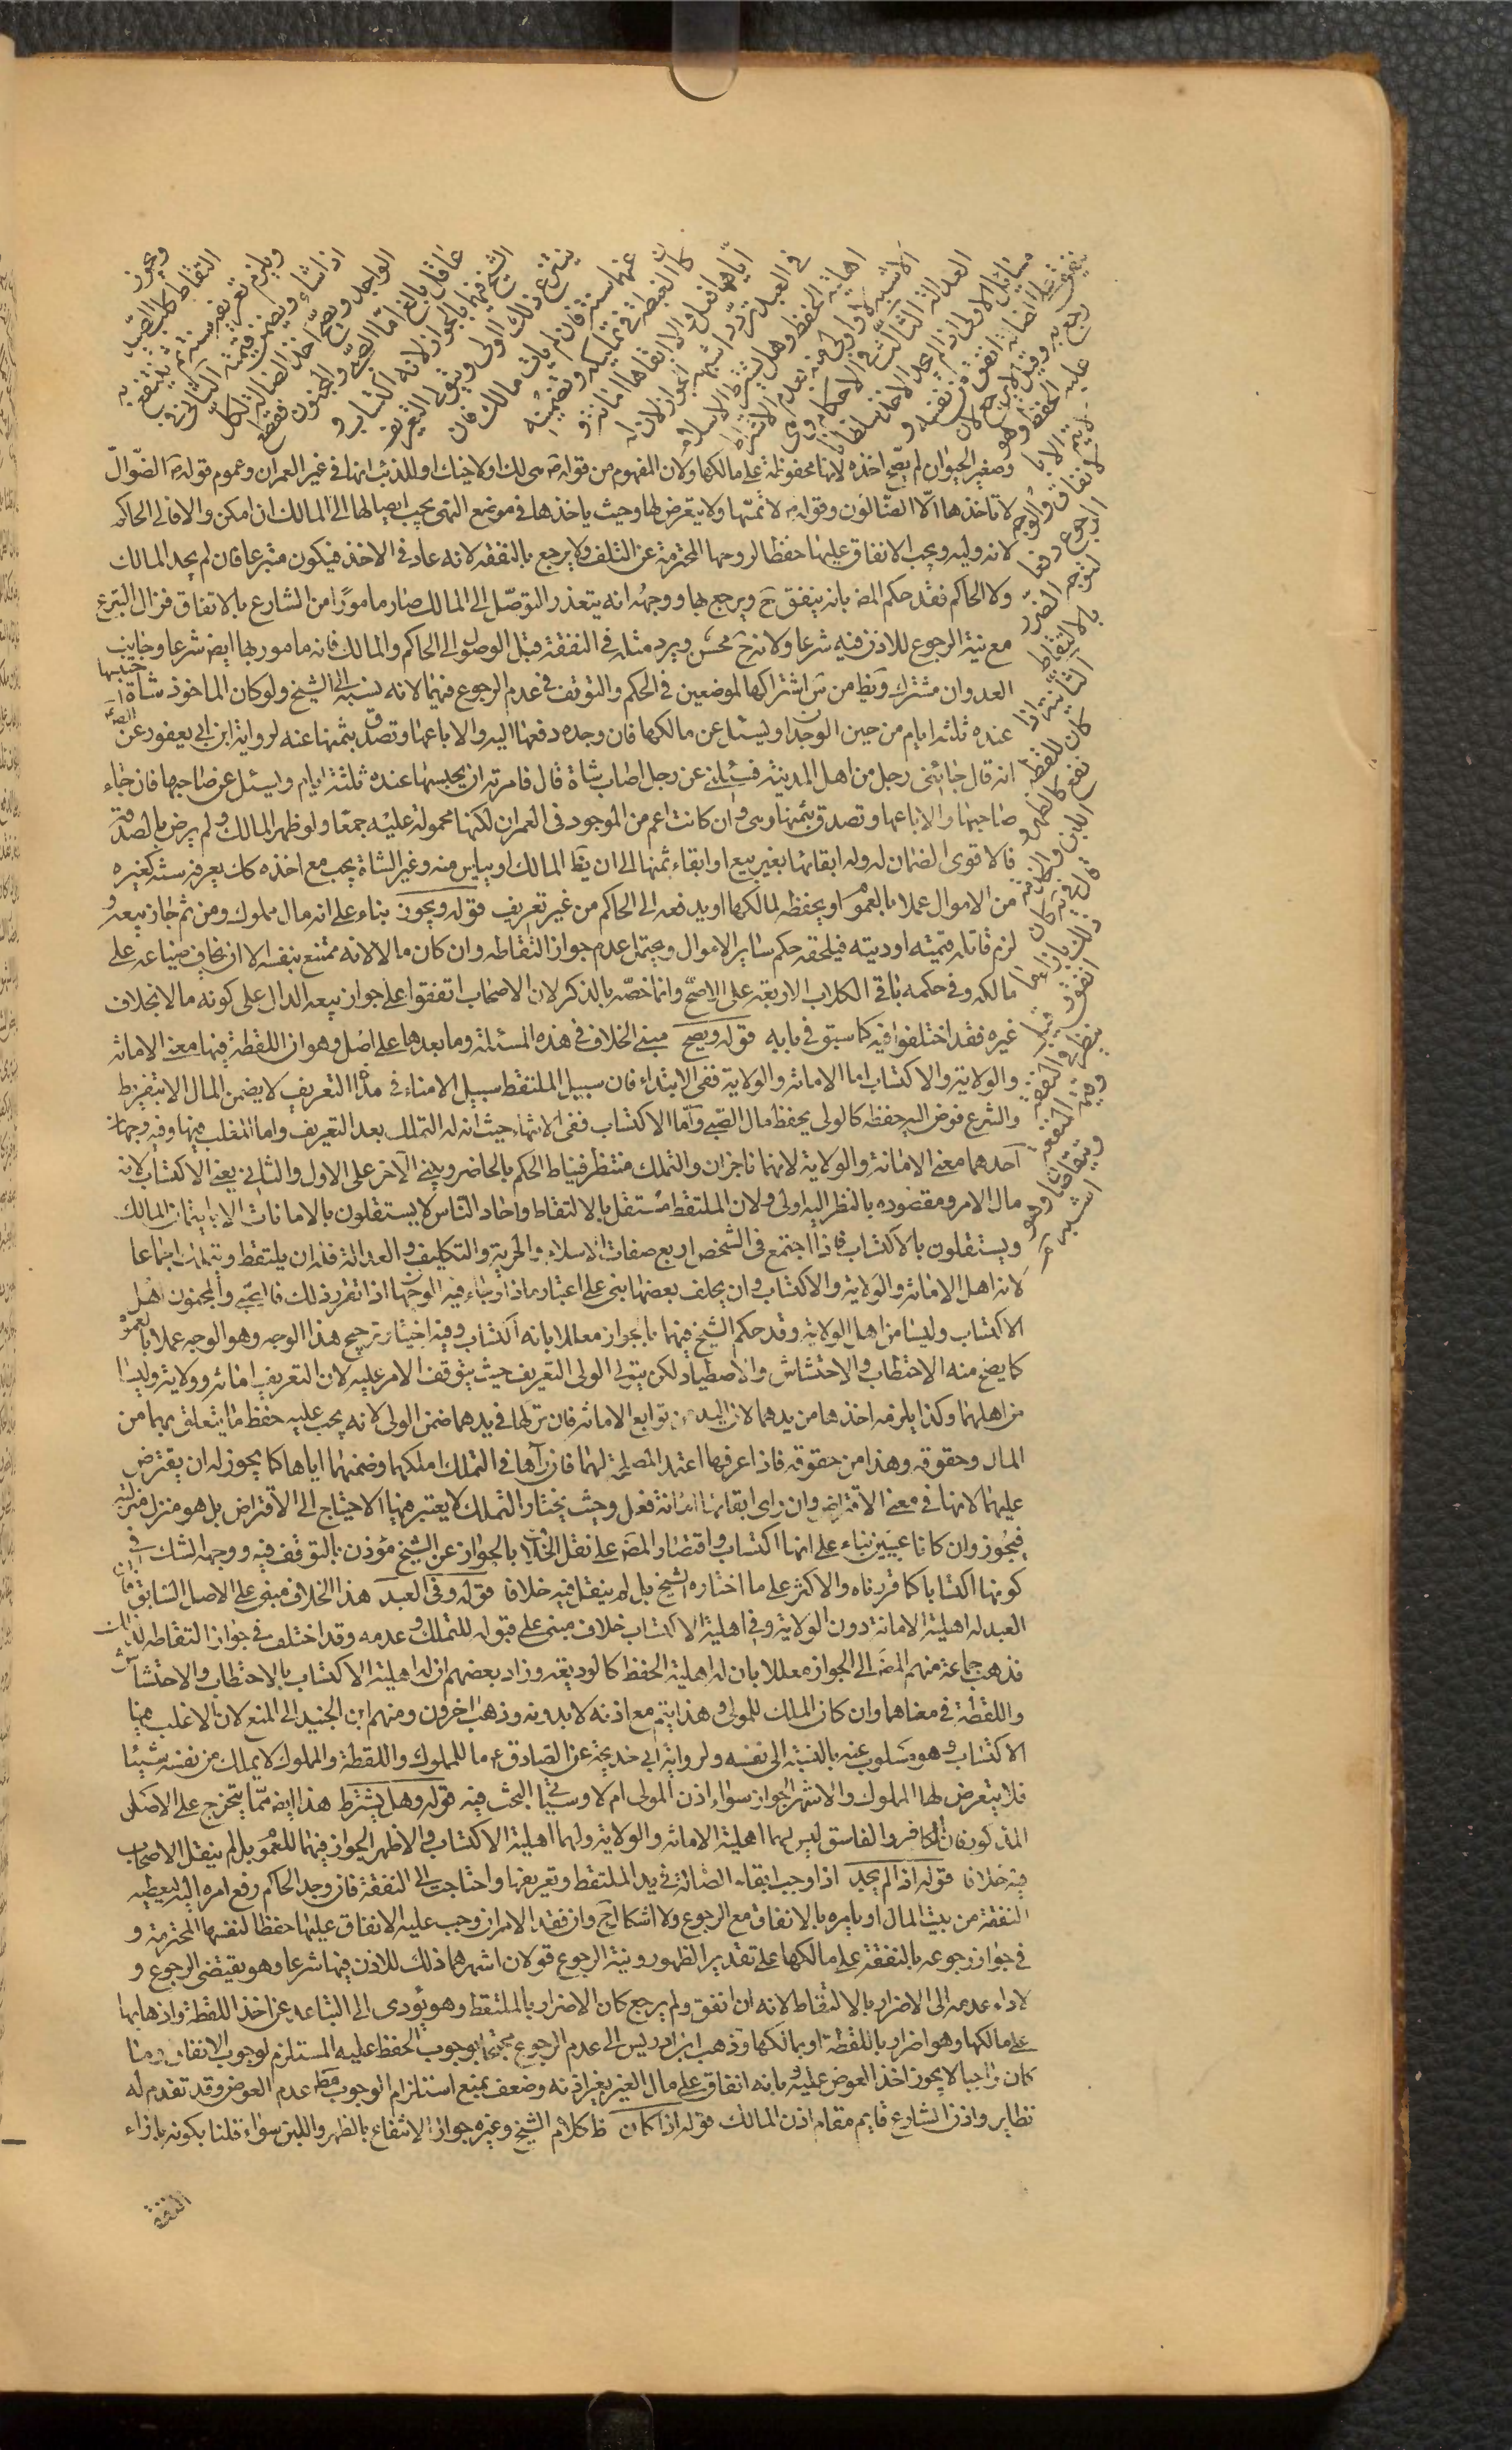 ويجوز التقاط كلب الصيد
ويلزم تعريفه سنة ثم ينتفع به
اذا شاء ويضمن قيمته الثاني في
الواجد ويصح اخذ الضالة لكل
عاقل بالغ اما الصبي والمجنون فقطع
الشيخ فيهما بالجواز لانه اكتساب و
ينتزع ذلك الولي ويتولى التعريف
عنهما سنة فان لم يات مالك فان
كان الغبطة في تمليكه وتضمينه
اياها فعل والا ابقاها امانة و
في العبد تردد اشبهه الجواز لان له
اهلية الحفظ وهل يشترط الاسلام
الاشبه لا واولى منه بعدم الاشتراط
العدالة الثالث في الاحكام وهي
مسائل الاولى اذا لم يجد الاخذ سلطانا
ينفق على الضالة انفق من نفسه و
رجع به وقيل لا يرجع لان
عليه الحفظ وهو
لا يتم الا با
لانفاق والوجه
الرجوع دفعا
لتوجه الضرر
بالالتقاط
الثانية اذا
كان للقطة
نفع كالظهر و
اللبن والخدمة
قال في ية كان
ذلك بازاء ما
انفق وقيل
ينظر في النفقة
وقيمة المنفعة
ويتقاصان وهو
اشبه
وصغير الحيوان لم يصح اخذه لانها محفوظة على مالكها ولان المفهوم من قوله ص هي لك او لاخيك او للذئب انها في غير العمران وعموم قوله ص الضوال
لا تاخذها الا الضالون وقوله ص لا تمسها ولا يتعرض لها وحيث ياخذها في موضع النهى يجب ايصالها الى المالك ان امكن والا فالى الحاكم
لانه وليه ويجب الانفاق عليها حفظا لروحها المحترمة عن التلف ولا يرجع بالنفقه لانه عاد في الاخذ فيكون متبرعا فان لم يجد المالك
ولا الحاكم فقد حكم المص بانه ينفق ح ويرجع بها ووجهه انه يتعذر التوصل الى المالك صار مامورا من الشارع بالانفاق فزال التبرع
مع نية الرجوع للاذن فيه شرعا ولانه ح محسن ويرد مثله في النفقة قبل الوصول الى الحاكم والمالك فانه مامور بها ايض شرعا وجانب
العدوان مشترك ويظ من ش اشتراكها لموضعين في الحكم والتوقف في عدم الرجوع فيهما لانه نسبه الى الشيخ ولو كان الماخوذ شاة حبسها
عنده ثلثة ايام من حين الوجدان ويسئل عن مالكها فان وجده دفعها اليه والا باعها وتصدق بثمنها عنه لرواية ابن ابي يعفور عن الص
انه قال جائني رجل من اهل المدينة فسئلني عن رجل اصاب شاة قال فامرته ان يحبسها عنده ثلثة ايام ويسئل عن صاحبها فان جاء
صاحبها والا باعها وتصدق بثمنها وهى وان كانت اعم من الموجود في العمران لكنها محمولة عليه جمعا ولو ظهر المالك ولم يرض بالصدقة
فالاقوى الضمان له وله ابقائها بغير بيع او ابقاء ثمنها الى ان يظ المالك او يياس منه وغير الشاة يجب مع اخذه كك يعرفه سنة كغيره
من الاموال عملا بالعموم او يحفظه لمالكها او يدفعه الى الحاكم من غير تعريف قوله ويجوز بناء على انه مال مملوك ومن ثم جاز بيعه و
لزم قاتله قيمته او ديته فيلحقه حكم ساير الاموال ويحتمل عدم جواز التقاطه وان كان مالا لانه ممتنع بنفسه الا ان يخاف ضياعه على
مالكه وفي حكمه باقي الكلاب الاربعة على الاصح وانما خصه بالذكر لان الاصحاب اتفقوا على جواز بيعه الدال على كونه مالا بخلاف
غيره فقد اختلفوا فيه كما سبق في بابه قوله ويصح مبنى الخلاف في هذه المسئلة وما بعدها على اصل وهو ان اللقطة فيها معنى الامانة
والولاية والاكتساب اما الامانة والولاية ففي الابتداء فان سبيل الملتقط سبيل الامناء في مدة التعريف لا يضمن المال الا بتفريط
والشرع فوض اليه حفظه كالولى يحفظ مال الصبي واما الاكتساب ففي الانتهاء حيث انه له التملك بعد التعريف واما المغلب فيها وفيه وجهان
احدهما معنى الامانة والولاية لانهما ناجزان والتملك منتظر فيناط الحكم بالحاضر ويبنى الاخر على الاول والثاني يعني الاكتساب لانه
مال الامر ومقصوده بالنظر اليه اولى ولان الملتقط مستقل بالالتقاط واحاد الناس لا يستقلون بالامانات الا بايتمان المالك
ويستقلون بالاكتساب فاذا اجتمع في الشخص اربع صفات الاسلام والحرية والتكليف والعدالة فله ان يلتقط ويتملك اجماعا
لانه اهل الامانة والولاية والاكتساب وان يخلف بعضها بنى على اعتبار ماذا وجاء فيه الوجهان اذا تقرر ذلك فالصبي والمجنون اهل
الاكتساب وليسا من اهل الولاية وقد حكم الشيخ فيهما بالجواز معللا بانه اكتساب وفيه اختيار ترجيح هذا الوجه وهو الوجه عملا بالعموم
كما يصح منه الاحتطاب والاحتشاش والاصطياد لكن يتولى الولى التعريف حيث يتوقف الامر عليه لان التعريف امانة وولاية وليسا
من اهلهما وكذا يلزمه اخذها من يدهما لان اليد من توابع الامانة فان تركها في يدهما ضمن الولى لانه يجب عليه حفظ ما يتعلق بهما من
المال وحقوقه وهذا من حقوقه فاذا عرفها اعتمد المصلحة لهما فان رآها في التملك املكهما وضمنهما اياها كما يجوز له ان يقترض
عليهما لانها في معنى الاقتراض وان راى ابقائها امانة فعل وحيث يختار التملك لا يعتبر فيها الاحتياج الى الاقتراض بل هو منزل منزلته
فيجوز وان كانا غنيين بناء على انها اكتساب واقتصار المص على نقل الخلاف بالجواز عن الشيخ مؤذن بالتوقف فيه ووجهه الشك في
كونها اكتسابا كما قررناه والاكثر على ما اختاره الشيخ بل لم ينقل فيه خلافا قوله وفي العبد هذا الخلاف مبنى على الاصل السابق فان
العبد له اهلية الامانة دون الولاية وفي اهلية الاكتساب خلاف مبنى على قبوله للتملك وعدمه وقد اختلف في جواز التقاطه لذلك
فذهب جماعة منهم المص الى الجواز معللا بان له اهلية الحفظ كالوديعة وزاد بعضهم ان له اهلية الاكتساب بالاحتطاب والاحتشاش
واللقطة في معناهما وان كان الملك للمولى وهذا يتم مع اذنه لا بدونه وذهب اخرون ومنهم ابن الجنيد الى المنع لان الاغلب فيها
الاكتساب وهو مسلوب عنه بالنسبة الى نفسه ولرواية ابي خديجة عن الصادق ع ما للمملوك واللقطة والمملوك لا يملك من نفسه شيئا
فلا يتعرض لها المملوك والاشهر الجواز سواء اذن المولى ام لا وسياتي البحث فيه قوله وهل يشترط هذا ايض مما يتخرج على الاصل
المذكور فان الكافر والفاسق ليس لهما اهلية الامانة والولاية ولهما اهلية الاكتساب والاظهر الجواز فيهما للعموم بل لم ينقل الاصحاب
فيه خلافا قوله اذا لم يجد اذا وجب ابقاء الضالة في يد الملتقط وتعريفها واحتاجت الى النفقة فان وجد الحاكم رفع امره اليه ليعطيه
النفقة من بيت المال او يامره بالانفاق مع الرجوع ولا اشكال ح وان فقد الامران وجب عليه الانفاق عليها حفظا لنفسها المحترمة و
في جواز رجوعه بالنفقة على مالكها على تقدير الظهور ونية الرجوع قولان اشهرهما ذلك للاذن فيها شرعا وهو يقتضى الرجوع و
لاداء عدمه الى الاضرار بالالتقاط لانه ان انفق ولم يرجع كان الاضرار بالملتقط وهو يؤدى الى التباعد عن اخذ اللقطة واذهابها
على مالكها وهو اضرار باللقطة او بمالكها وذهب ابن ادريس الى عدم الرجوع محتجا بوجوب الحفظ عليه المستلزم لوجوب الانفاق وما
كان واجبا لا يجوز اخذ العوض عليه وبانه انفاق على مال الغير بغير اذنه وضعف بمنع استلزام الوجوب مط عدم العوض وقد تقدم له
نظاير واذن الشارع قايم مقام اذن المالك قوله اذا كان ظ كلام الشيخ وغيره جواز الانتفاع بالظهر واللبن سواء قلنا بكونه بازاء
النفقة